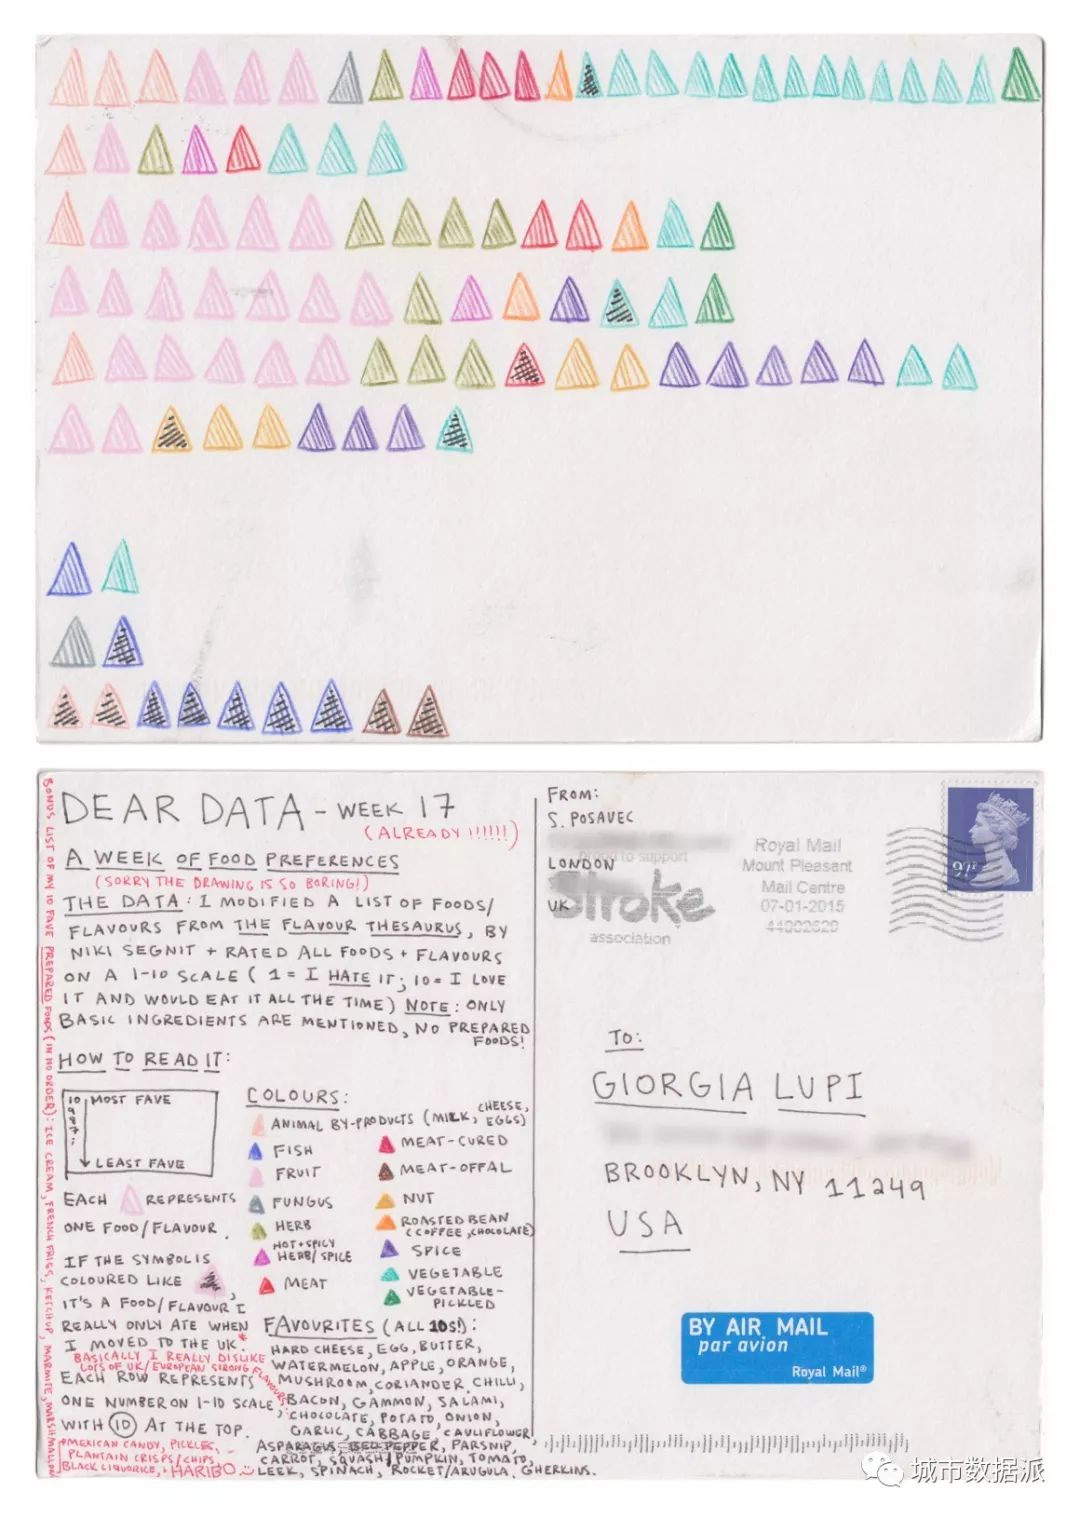 DEAR DATA - WEEK 17
(ALREADY!!!!!!)
A WEEK OF FOOD PREFERENCES
(SORRY THE DRAWING IS SO BORING!)
THE DATA: I MODIFIED A LIST OF FOODS/
FLAVOURS FROM THE FLAVOUR THESAURUS, BY
NIKI SEGNIT + RATED ALL FOODS + FLAVOURS
ON A 1-10 SCALE (1 = I HATE IT; 10 = I LOVE
IT AND WOULD EAT IT ALL THE TIME) NOTE: ONLY
BASIC INGREDIENTS ARE MENTIONED, NO PREPARED
FOODS!
HOW TO READ IT:
10 MOST FAVE
9
8
7
LEAST FAVE
EACH REPRESENTS
ONE FOOD/FLAVOUR.
IF THE SYMBOL IS
COLOURED LIKE ,
IT'S A FOOD/FLAVOUR I
REALLY ONLY ATE WHEN
I MOVED TO THE UK.*
BASICALLY I REALLY DISLIKE
LOTS OF UK/EUROPEAN STRONG FLAVOURS
EACH ROW REPRESENTS
ONE NUMBER ON 1-10 SCALE,
WITH 10 AT THE TOP.
+MEXICAN CANDY, PICKLES,
PLANTAIN CRISPS/CHIPS,
BLACK LIQUORICE, + HARIBO
BONUS LIST OF MY 10 FAVE PREPARED FOODS (IN NO ORDER): ICE CREAM, FRENCH FRIES, KETCHUP, MARMITE, MARSHMALLOW
COLOURS:
ANIMAL BY-PRODUCTS (MILK, CHEESE, EGGS)
FISH
FRUIT
FUNGUS
HERB
HOT+SPICY
HERB/SPICE
MEAT
MEAT-CURED
MEAT-OFFAL
NUT
ROASTED BEAN
(COFFEE, CHOCOLATE)
SPICE
VEGETABLE
VEGETABLE-
PICKLED
FAVOURITES (ALL 10S!):
HARD CHEESE, EGG, BUTTER,
WATERMELON, APPLE, ORANGE,
MUSHROOM, CORIANDER, CHILLI,
BACON, GAMMON, SALAMI,
CHOCOLATE, POTATO, ONION,
GARLIC, CABBAGE, CAULIFLOWER
ASPARAGUS, BELL PEPPER, PARSNIP,
CARROT, SQUASH/PUMPKIN, TOMATO,
LEEK, SPINACH, ROCKET/ARUGULA, GHERKINS.
FROM:
S. POSAVEC
LONDON
UK
proud to support
Stroke
association
Royal Mail
Mount Pleasant
Mail Centre
07-01-2015
44002620
97p
TO:
GIORGIA LUPI
BROOKLYN, NY 11249
USA
BY AIR MAIL
par avion
Royal Mail®
城市数据派